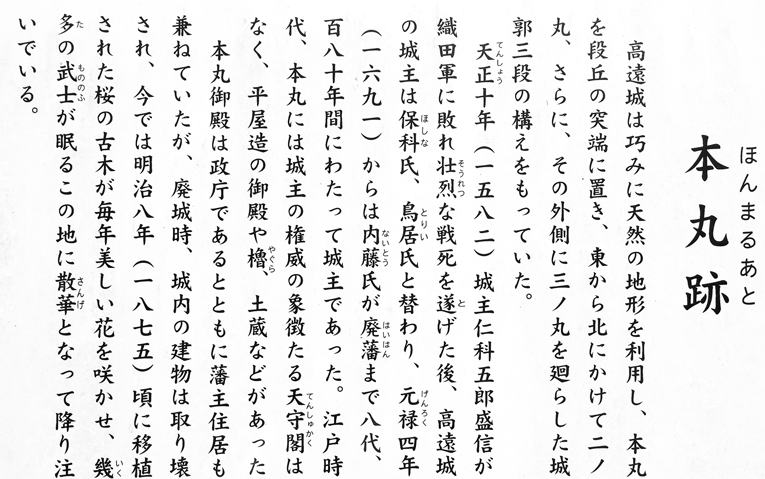 ほんまるあと
本丸跡
高遠城は巧みに天然の地形を利用し、本丸
を段丘の突端に置き、東から北にかけて二ノ
丸、さらに、その外側に三ノ丸を廻らした城
郭三段の構えをもっていた。
天正十年（一五八二）城主仁科五郎盛信が
織田軍に敗れ壮烈な戦死を遂げた後、高遠城
の城主は保科氏、鳥居氏と替わり、元禄四年
（一六九一）からは内藤氏が廃藩まで八代、
百八十年間にわたって城主であった。江戸時
代、本丸には城主の権威の象徴たる天守閣は
なく、平屋造の御殿や櫓、土蔵などがあった
本丸御殿は政庁であるとともに藩主住居も
兼ねていたが、廃城時、城内の建物は取り壊
され、今では明治八年（一八七五）頃に移植
された桜の古木が毎年美しい花を咲かせ、幾
多の武士が眠るこの地に散華となって降り注
いでいる。